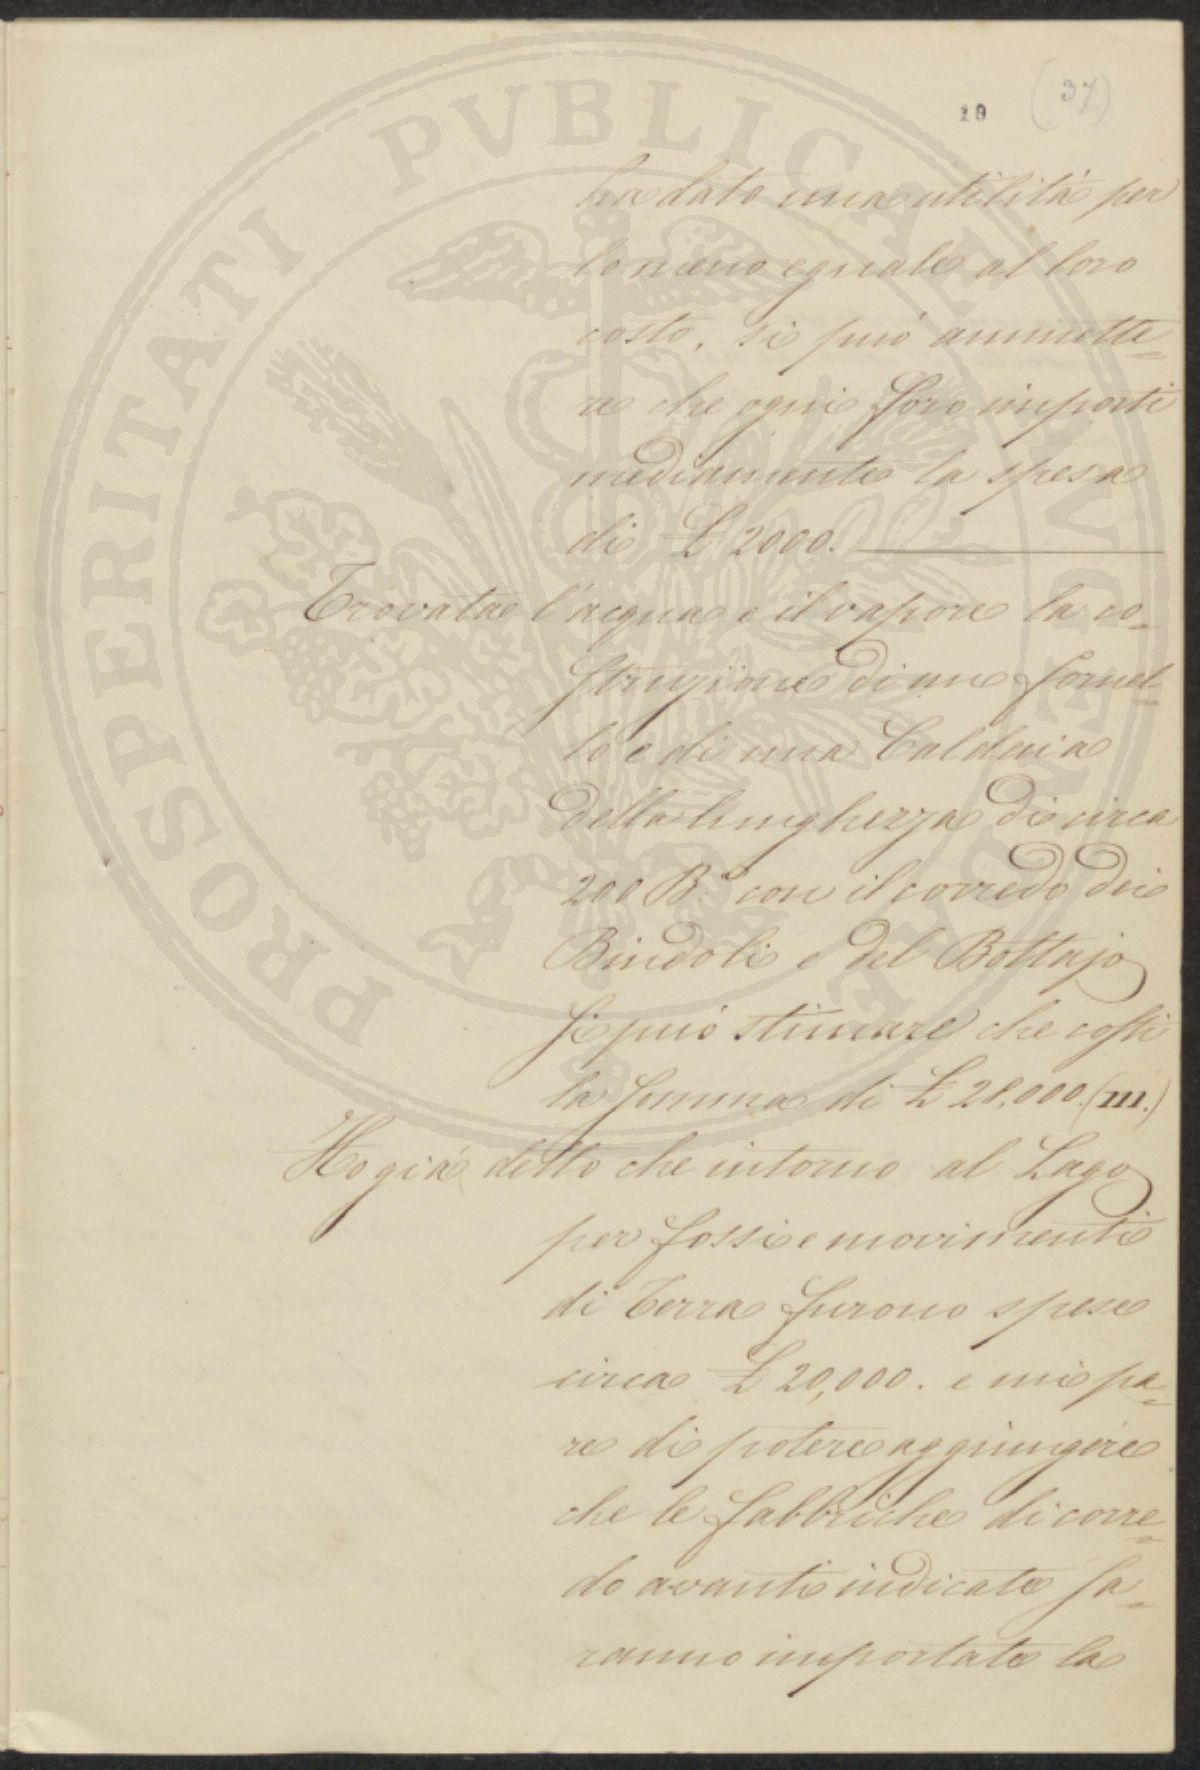 19 (37)
ha dato una utilità per
lo meno eguale al loro
costo, si può ammette=
re che ogni foro importi
mediamente la spesa
di £ 2000.
Trovata l'acqua e il vapore la co=
struzione di un fornel=
lo e di una Caldaia
della lunghezza di circa
200 B.ª con il corredo dei
Bindoli e del Bottajo
si può stimare che costi
la somma di £ 28,000. (m.)
Ho già detto che intorno al Lago
per fossi e movimenti
di Terra furono spese
circa £ 20,000. e mi pa=
re di potere aggiungere
che le fabbriche di corre=
do avanti indicate sa=
ranno importate la
PROSPERITATI PVBLICAE AVGENDAE